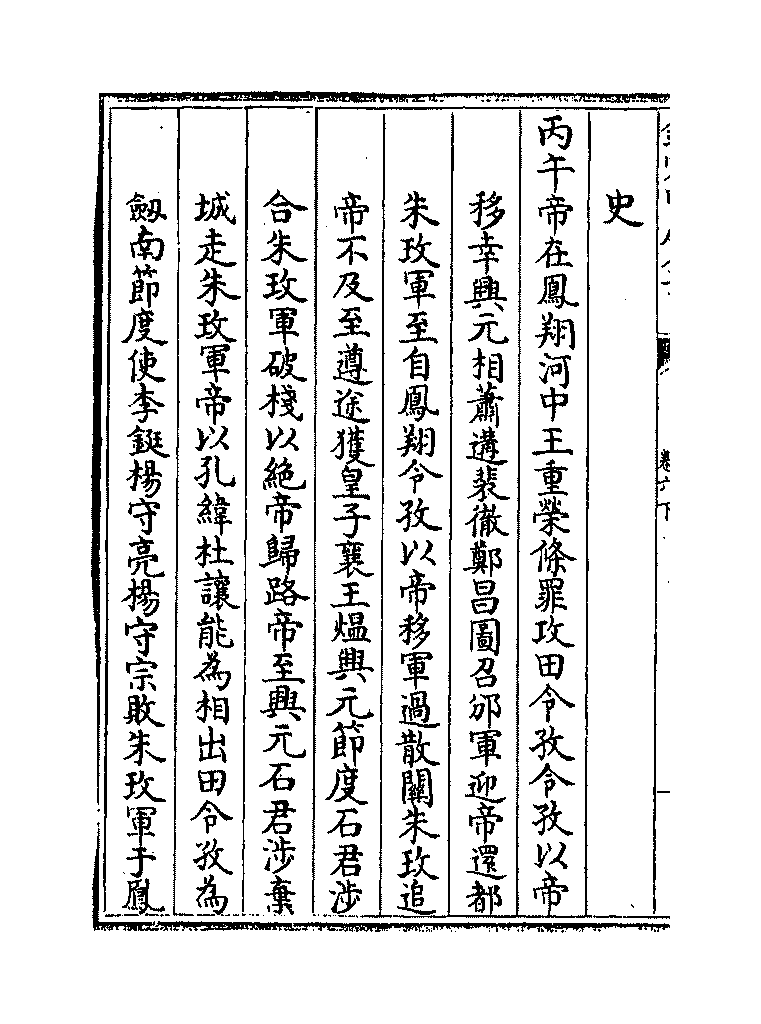 史
丙午帝在鳳翔河中王重榮條罪攻田令孜令孜以帝
移幸興元相蕭遘裴徹鄭昌圖召邠軍迎帝還都
朱玫軍至自鳳翔令孜以帝移軍過散關朱玫追
帝不及至遵途獲皇子襄王熅興元節度石君涉
合朱玫軍破棧以絶帝歸路帝至興元石君涉棄
城走朱玫軍帝以孔緯杜讓能為相出田令孜為
劔南節度使李鋋楊守亮楊守宗敗朱玫軍于鳳
卷六下